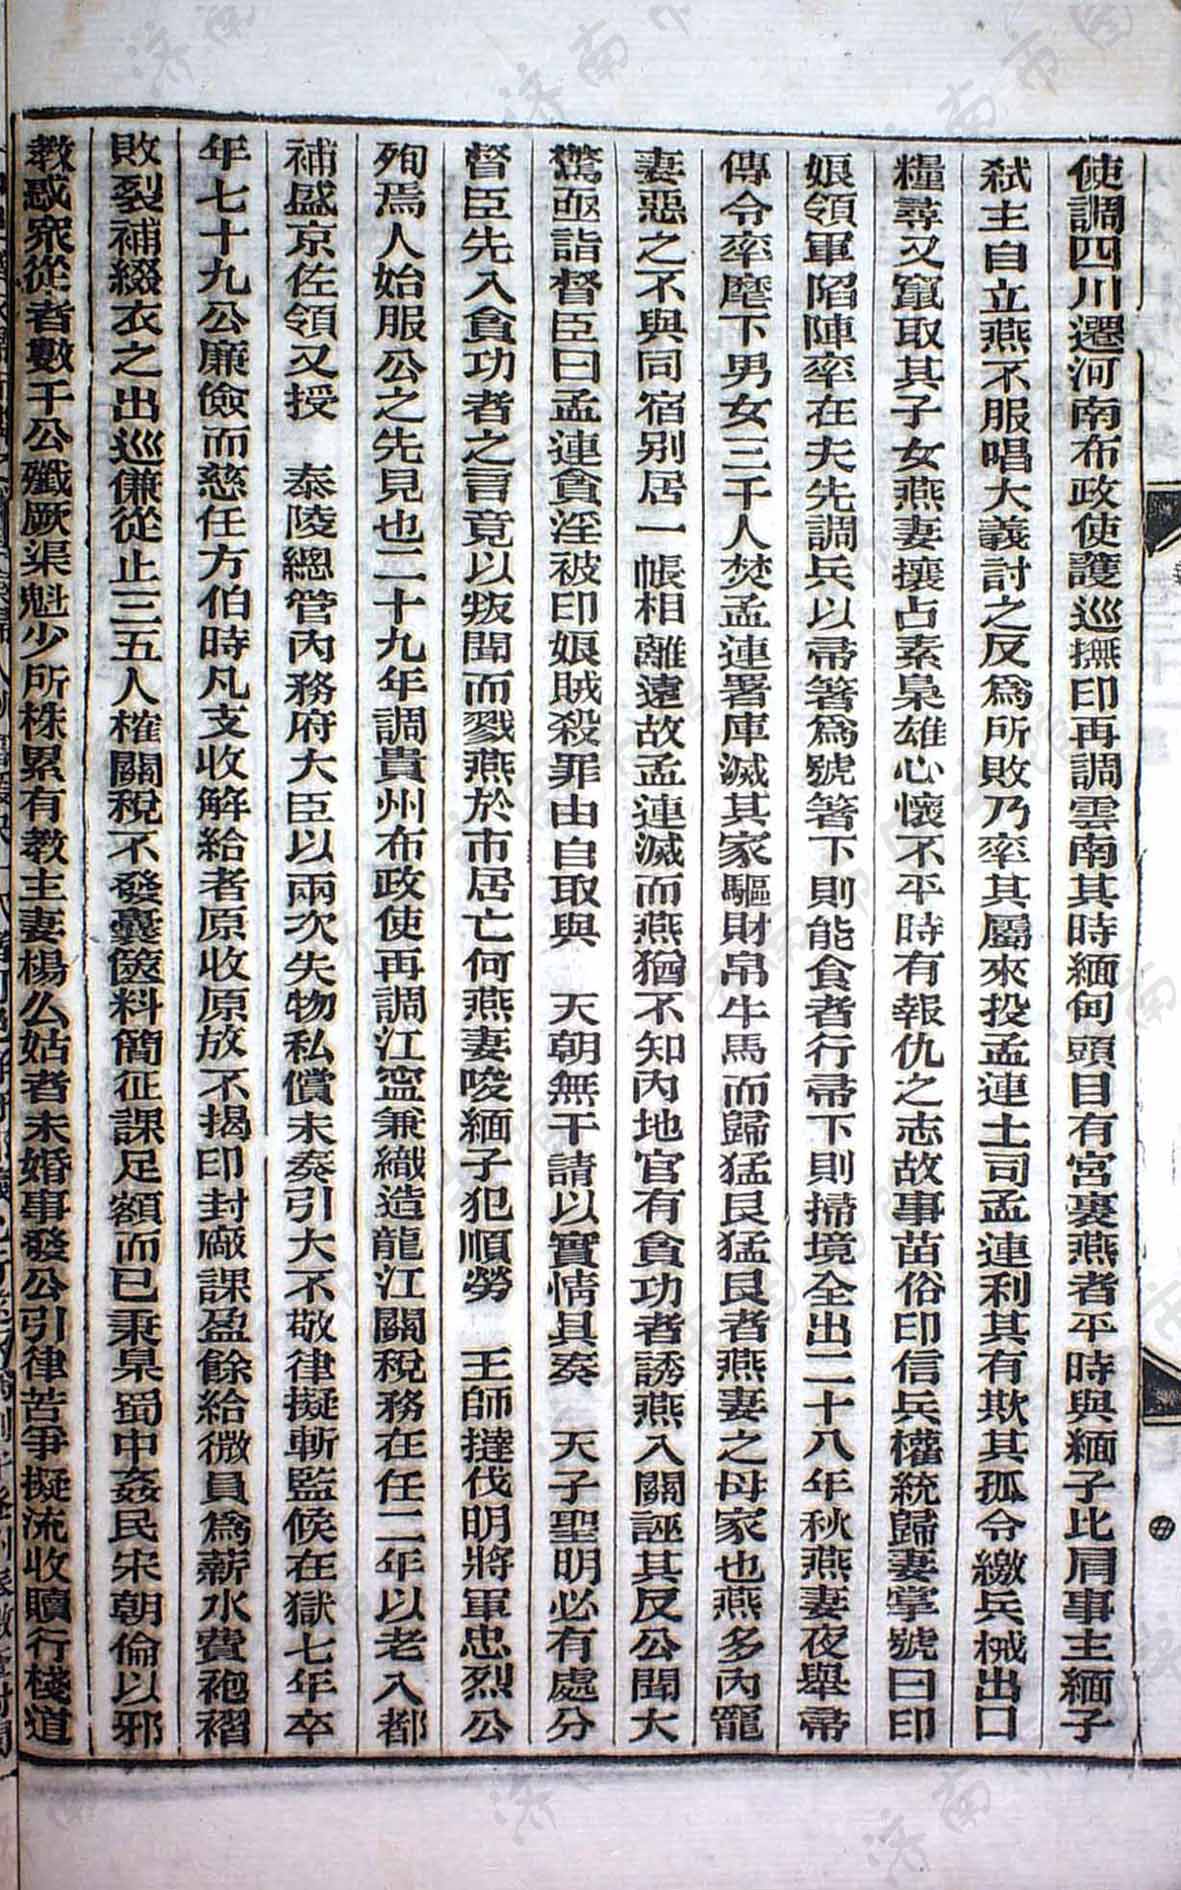 使調四川遷河南布政使護巡撫印再調雲南其時緬甸頭目有宮裏燕者平時與緬子比肩事主緬子
弒主自立燕不服唱大義討之反爲所敗乃率其屬來投孟連土司孟連利其有欺其孤令繳兵械出口
糧尋又竄取其子女燕妻攘占素梟雄心懷不平時有報仇之志故事苗俗印信兵權統歸妻掌號曰印
娘領軍陷陣率在夫先調兵以帚箸爲號箸下則能食者行帚下則掃境全出二十八年秋燕妻夜舉帚
傳令率麾下男女三千人焚孟連署庫滅其家驅財帛牛馬而歸猛艮猛艮者燕妻之母家也燕多內寵
妻惡之不與同宿別居一帳相離遠故孟連滅而燕猶不知內地官有貪功者誘燕入關誣其反公聞大
驚亟詣督臣曰孟連貪淫被印娘賊殺罪由自取與　天朝無干請以實情具奏　天子聖明必有處分
督臣先入貪功者之言竟以叛聞而戮燕於市居亡何燕妻唆緬子犯順勞　王師撻伐明將軍忠烈公
殉焉人始服公之先見也二十九年調貴州布政使再調江寍兼織造龍江關稅務在任二年以老入都
補盛京佐領又授　泰陵總管內務府大臣以兩次失物私償未奏引大不敬律擬斬監候在獄七年卒
年七十九公廉儉而慈任方伯時凡支收解給者原收原放不揭印封廠課盈餘給微員爲薪水費袍褶
敗裂補綴衣之出巡傔從止三五人榷關稅不發囊篋料簡征課足額而已秉臬蜀中姦民宋朝倫以邪
教惑衆從者數千公殲厥渠魁少所株累有教主妻楊么姑者未婚事發公引律苦爭擬流收贖行棧道